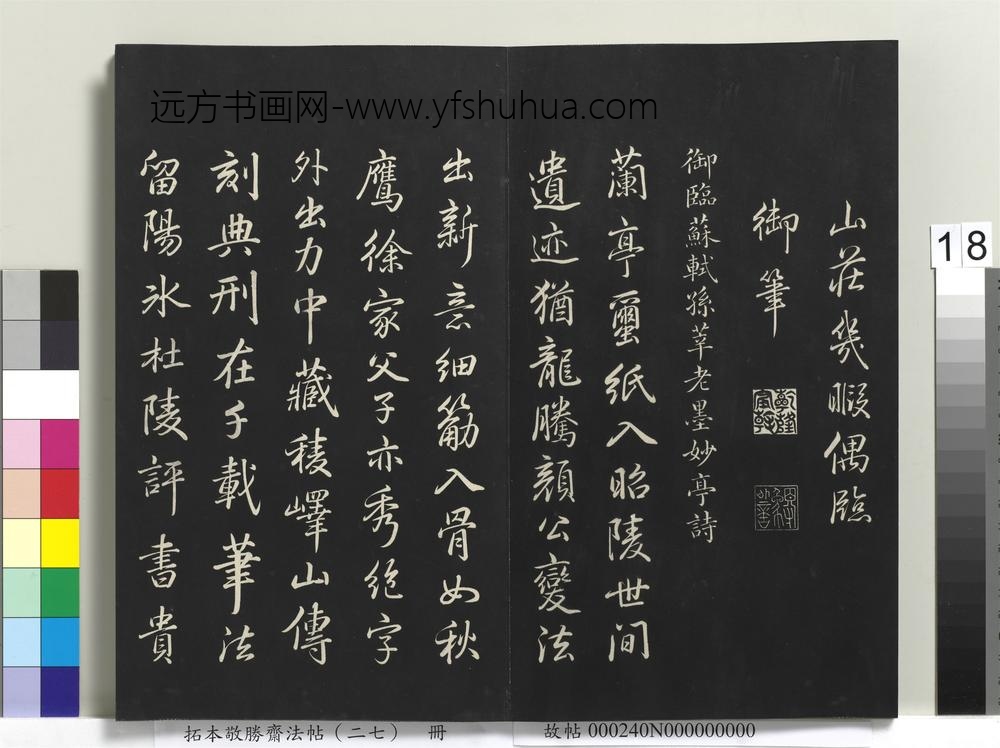 远方书画网-www.yfshuhua.com
山莊幾暇偶臨
御筆
御臨蘇軾孫莘老墨妙亭詩
蘭亭璽紙入昭陵世间
遺迹猶龍騰顏公變法
出新意细筋入骨如秋
鷹徐家父子亦秀绝字
外出力中藏稜嶧山傳
刻典刑在千載筆法
留陽冰杜陵評書貴
18
拓本敬勝齋法帖（二七） 冊
故帖 000240N000000000